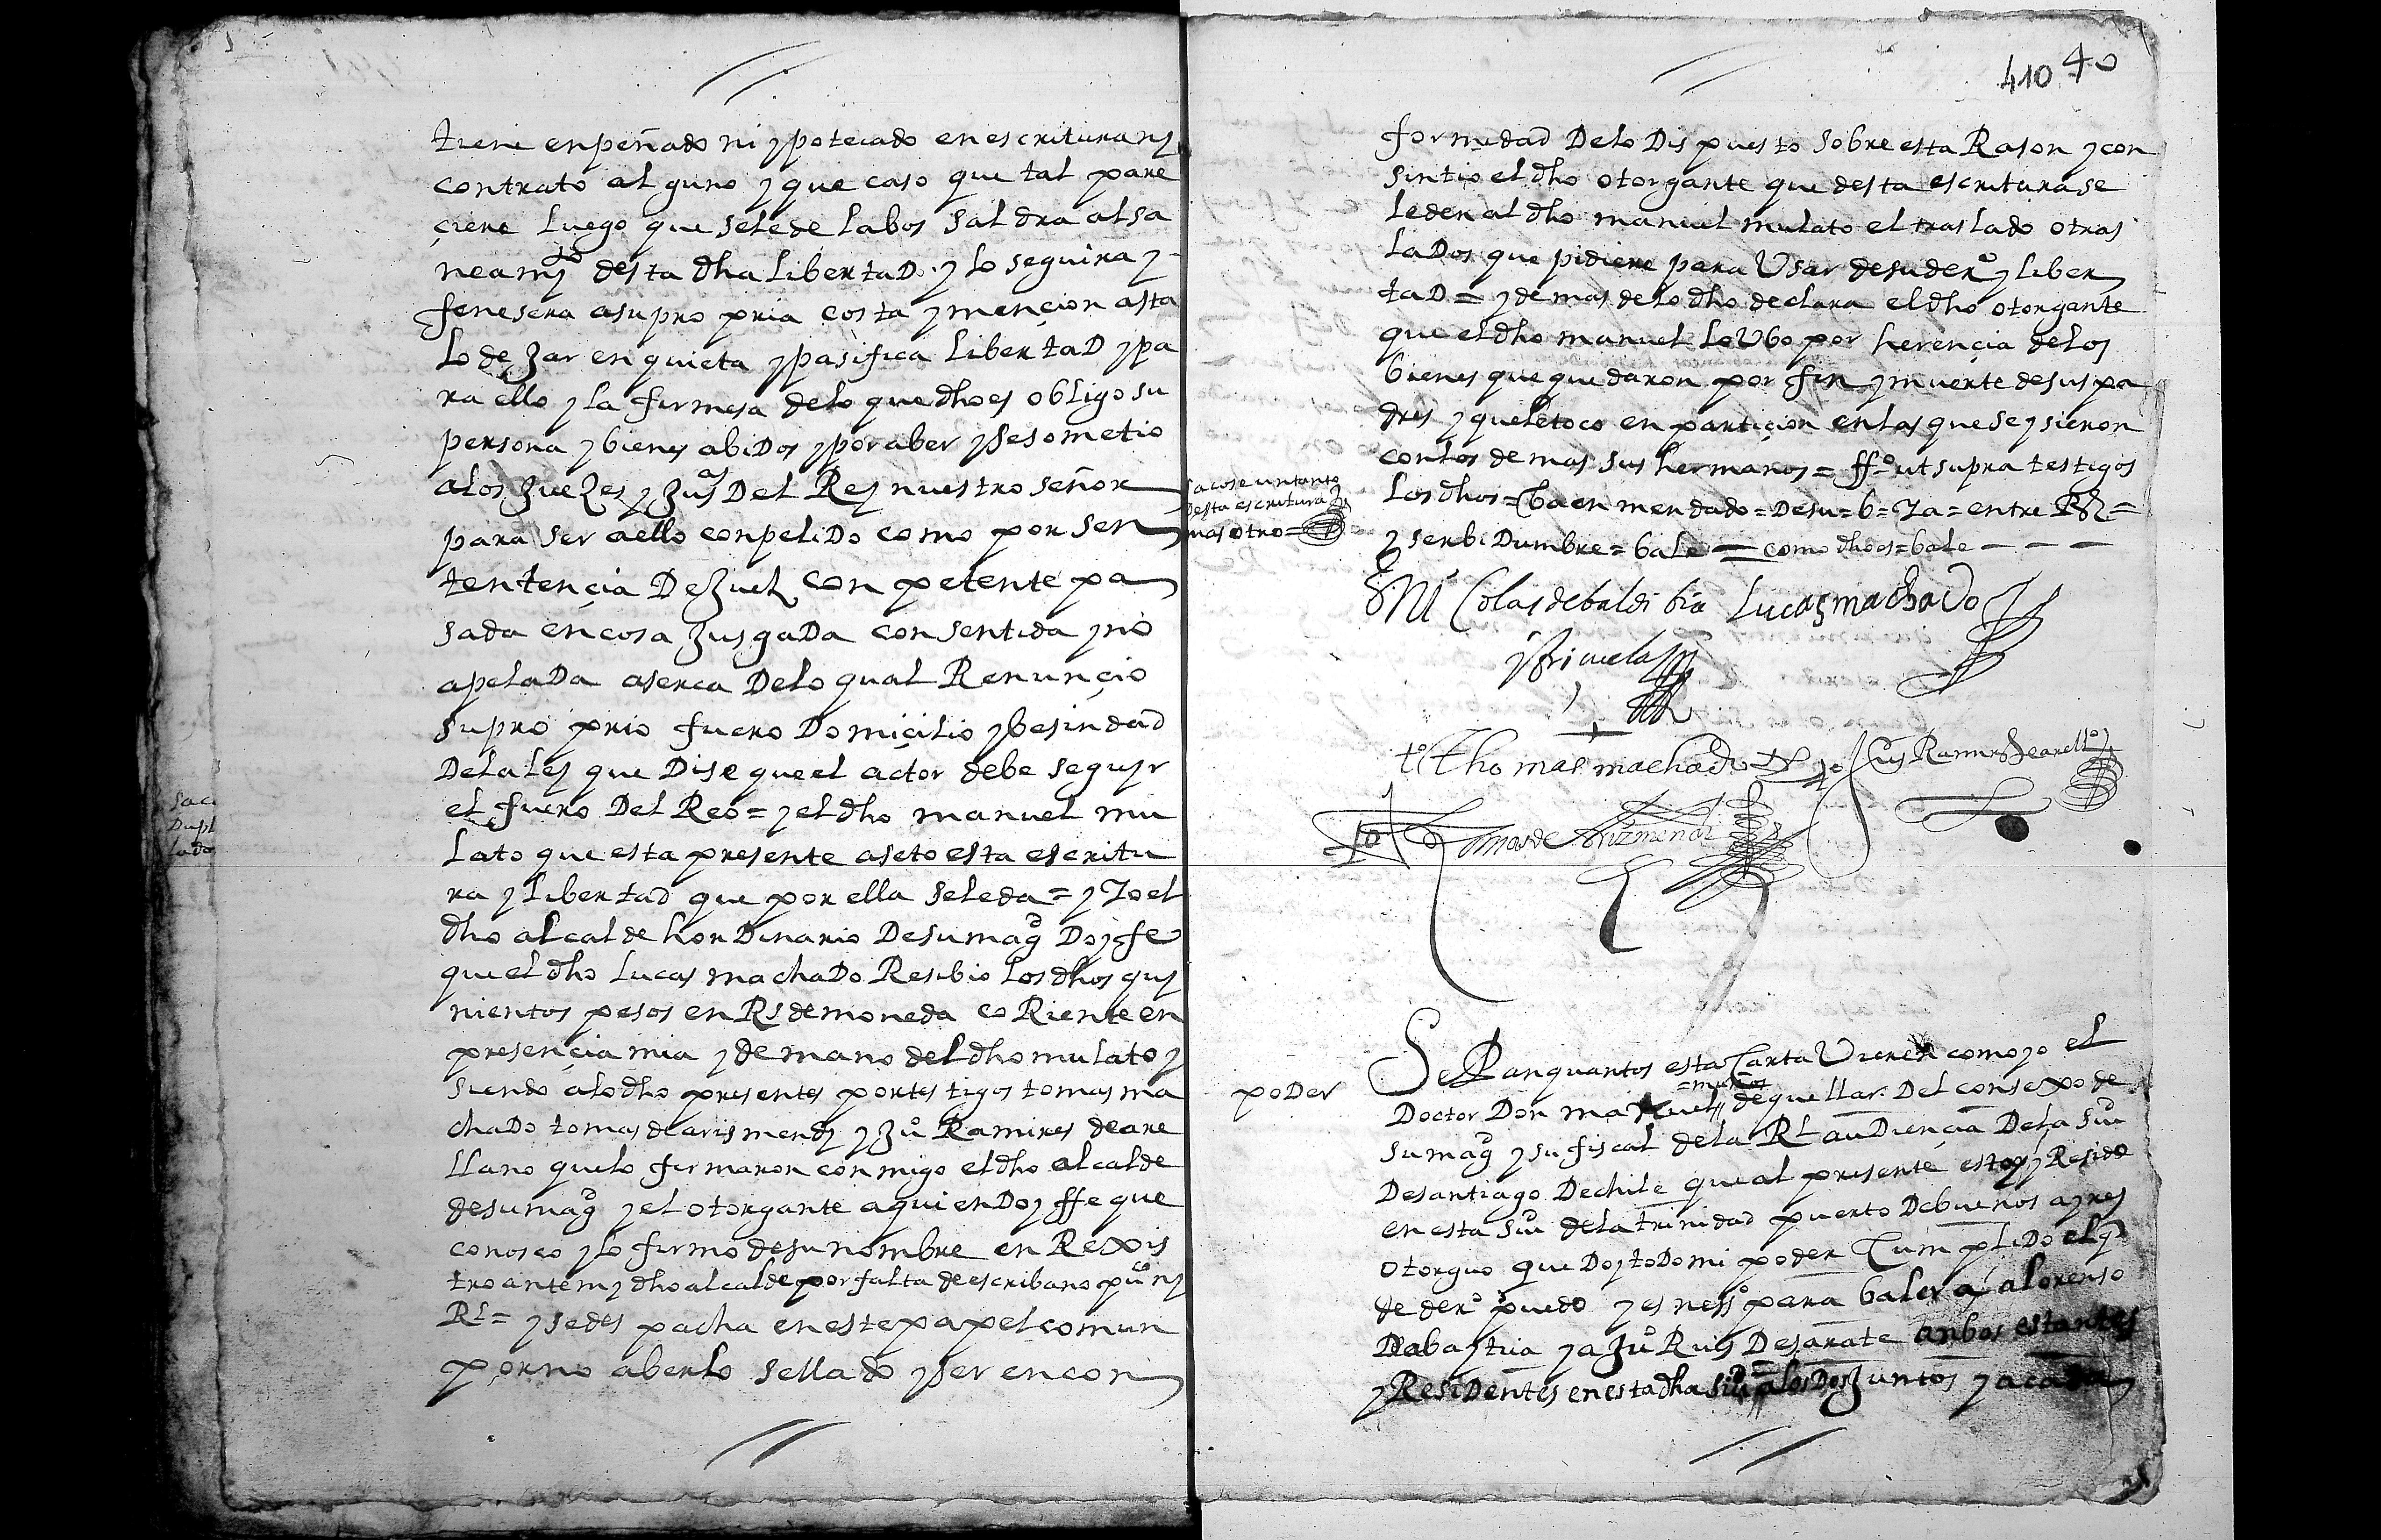 tiene enpeñado ni ypotecado en escritura ny
contrato alguno y que caso que tal pare
çiere luego que sele de la bos saldra al sa
neamyto desta dha libertaD. y lo seguira y
fenesera asupro pria costa y mençion asta
lo deZar en quieta ypasifica libertaD ypa
ra ello y la firmesa delo que dho es obligo su
persona y bienes abiDos ypor aber yse sometio
alos Zueses y Zuas Del Rey nuestro señor
para ser aello conpeliDo como por sen
tentençia DeZuez conpetente pa
sada en cosa ZusgaDa consentida y no
apelaDa aserca Delo qual Renunçio
supro prio fuero Domiçilio ybesindad
Dela ley que Dise que el actor debe seguyr
el fuero Del Reo = y el dho manuel mu
lato que esta presente aseto esta escritu
ra y libertad que por ella sele da = y Yo el
dho alcalde hordinario Desu magd Doy fe
que el dho lucas machaDo Resibio los dhos quy
nientos pesos en Rs de moneda coRiente en
presençia mia y de mano del dho mulato y
siendo alo dho presentes por testigos tomas ma
chaDo tomas de arismendy y Zuo Ramires de are
llano que lo firmaron conmigo el dho alcalde
desu magd y el otorgante aquien Doy ffe que
conosco y lo firmo desu nombre en Rexis
tro ante my dho alcalde por falta de escribano puco ny
Rl = y se despacha en este papel comun
por no aberlo sellado yser en con
Saca
Dupl
lado
410 40
formidad Delo Dispuesto sobre esta Rason y con
sintio el dho otorgante que desta escritura se
le den al dho manuel mulato el traslado otras
laDos que pidiere para Usar de su dero y liber
taD = y de mas delo dho declara el dho otorgante
que el dho manuel lo Ubo por herençia delos
bienes que quedaron por fin y muerte desus pa
dres y que le toco en partiçion en las que se ysieron
con los demas sus hermanos = ffo ut supra testigos
los dhos = Ba enmendado = Desu = b = Ya = entre Rs =
y serbiDumbre = bale = como dho es = bale
sacose un tanto
desta escritura y
mas otro =
Colas de baldibia lucas machaDo
y Briçuela
to thomas machado to Jus Ramires de arello
to Tomas de Arizmendi
poDer
Sepan quantos esta Carta Vieren como yo el
= muños
Doctor Don manuel de quellar Del consexo de
su magd y su fiscal dela Rl auDiençia Dela Siu
De santiago De chile que al presente estoy y Resido
en esta Siu dela trinidad puerto De buenos ayres
otorguo que Doy toDo mi poder CumpliDo el q
de dero puedo y es nesso para baler a lorenso
De bastida y a Zuo Ruis De sarate anbos estantes
y ResiDentes en esta dha Siu a los Dos Zuntos y a cada